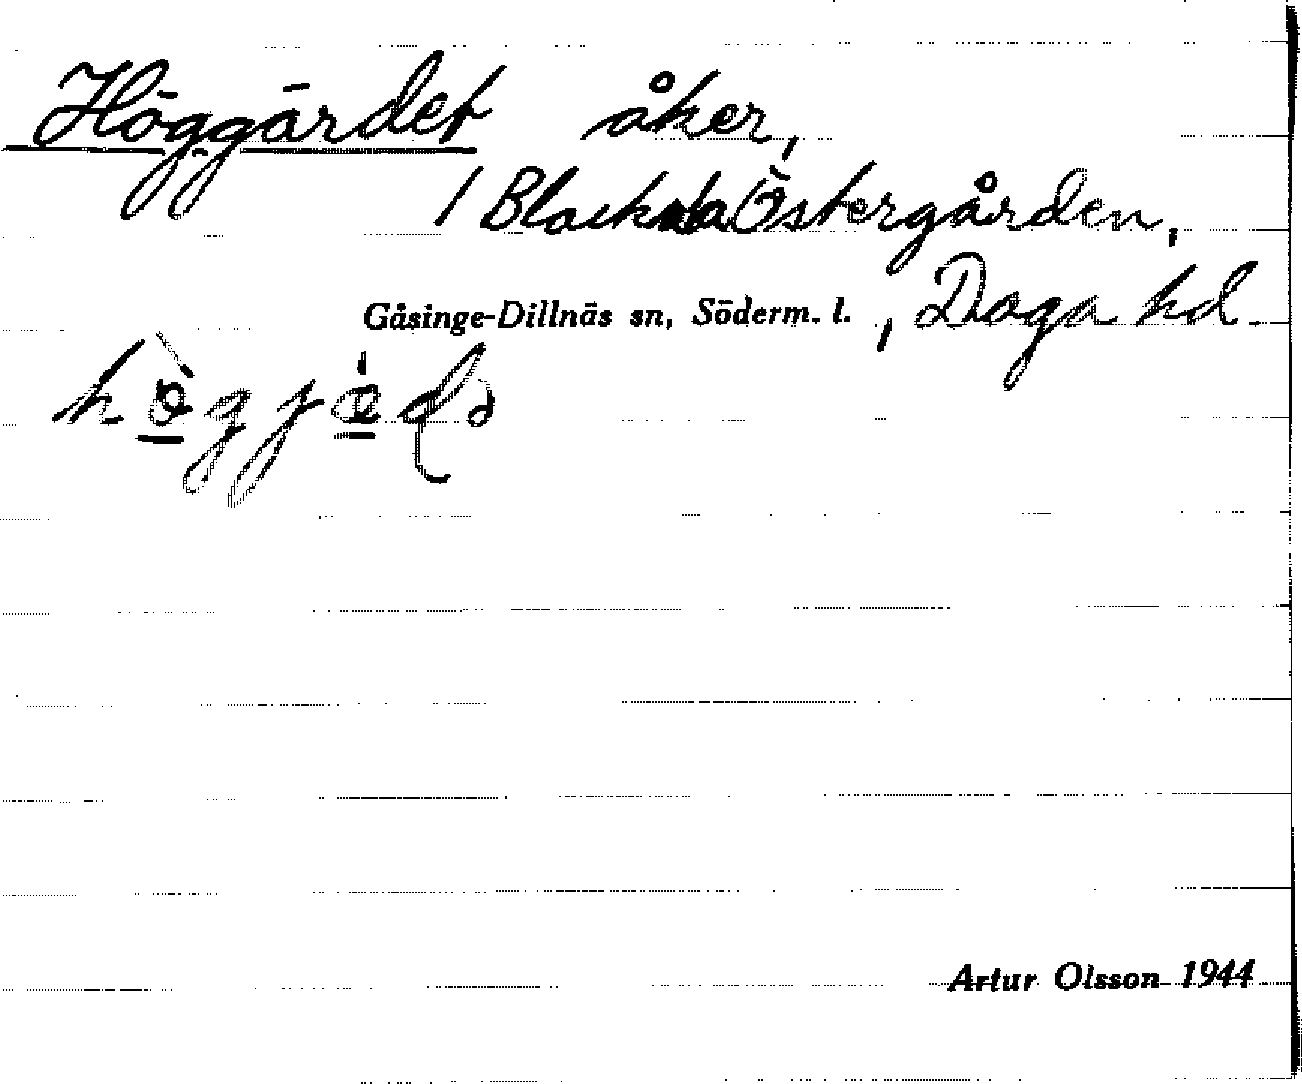 Höggärdet åker,
/ Blacksta Östergården,
Gåsinge-Dillnäs sn, Söderm. l. , Daga hd
Artur Olsson 1944